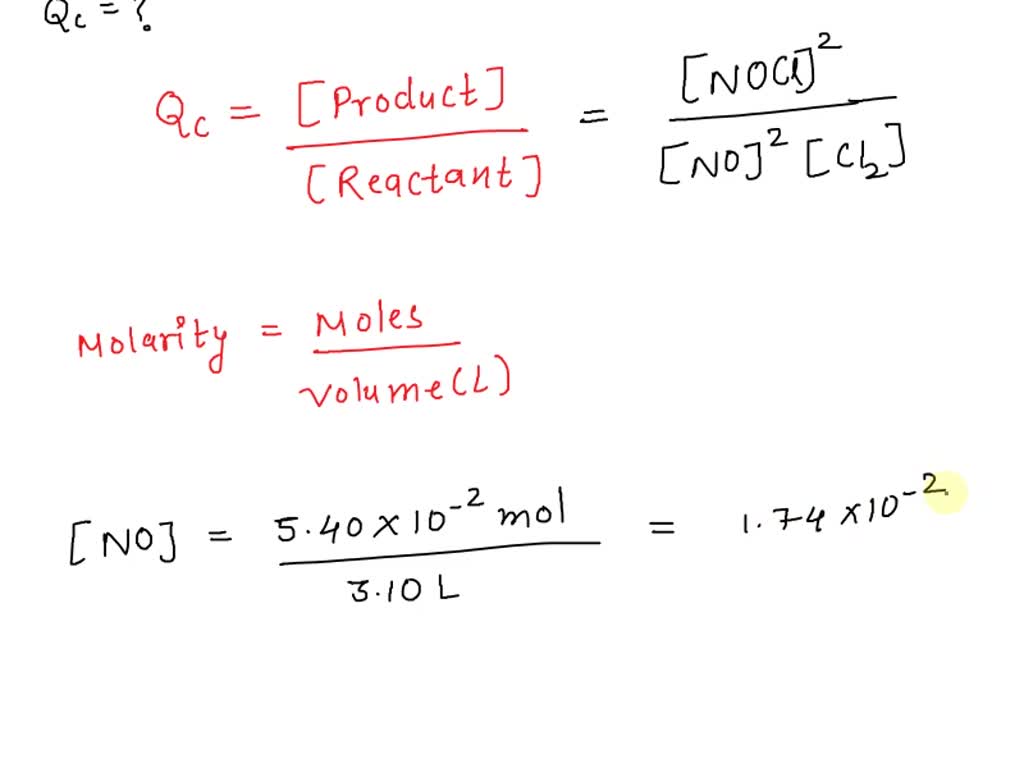 Qc = ?
Qc = [Product] / [Reactant] = [NOCl]² / [NO]² [Cl₂]
Molarity = Moles / Volume(L)
[NO] = 5.40 × 10⁻² mol / 3.10 L = 1.74 × 10⁻²